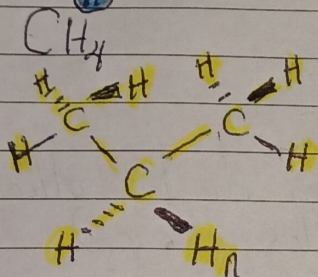 CH4
H H H H
C C
H H
C
H H